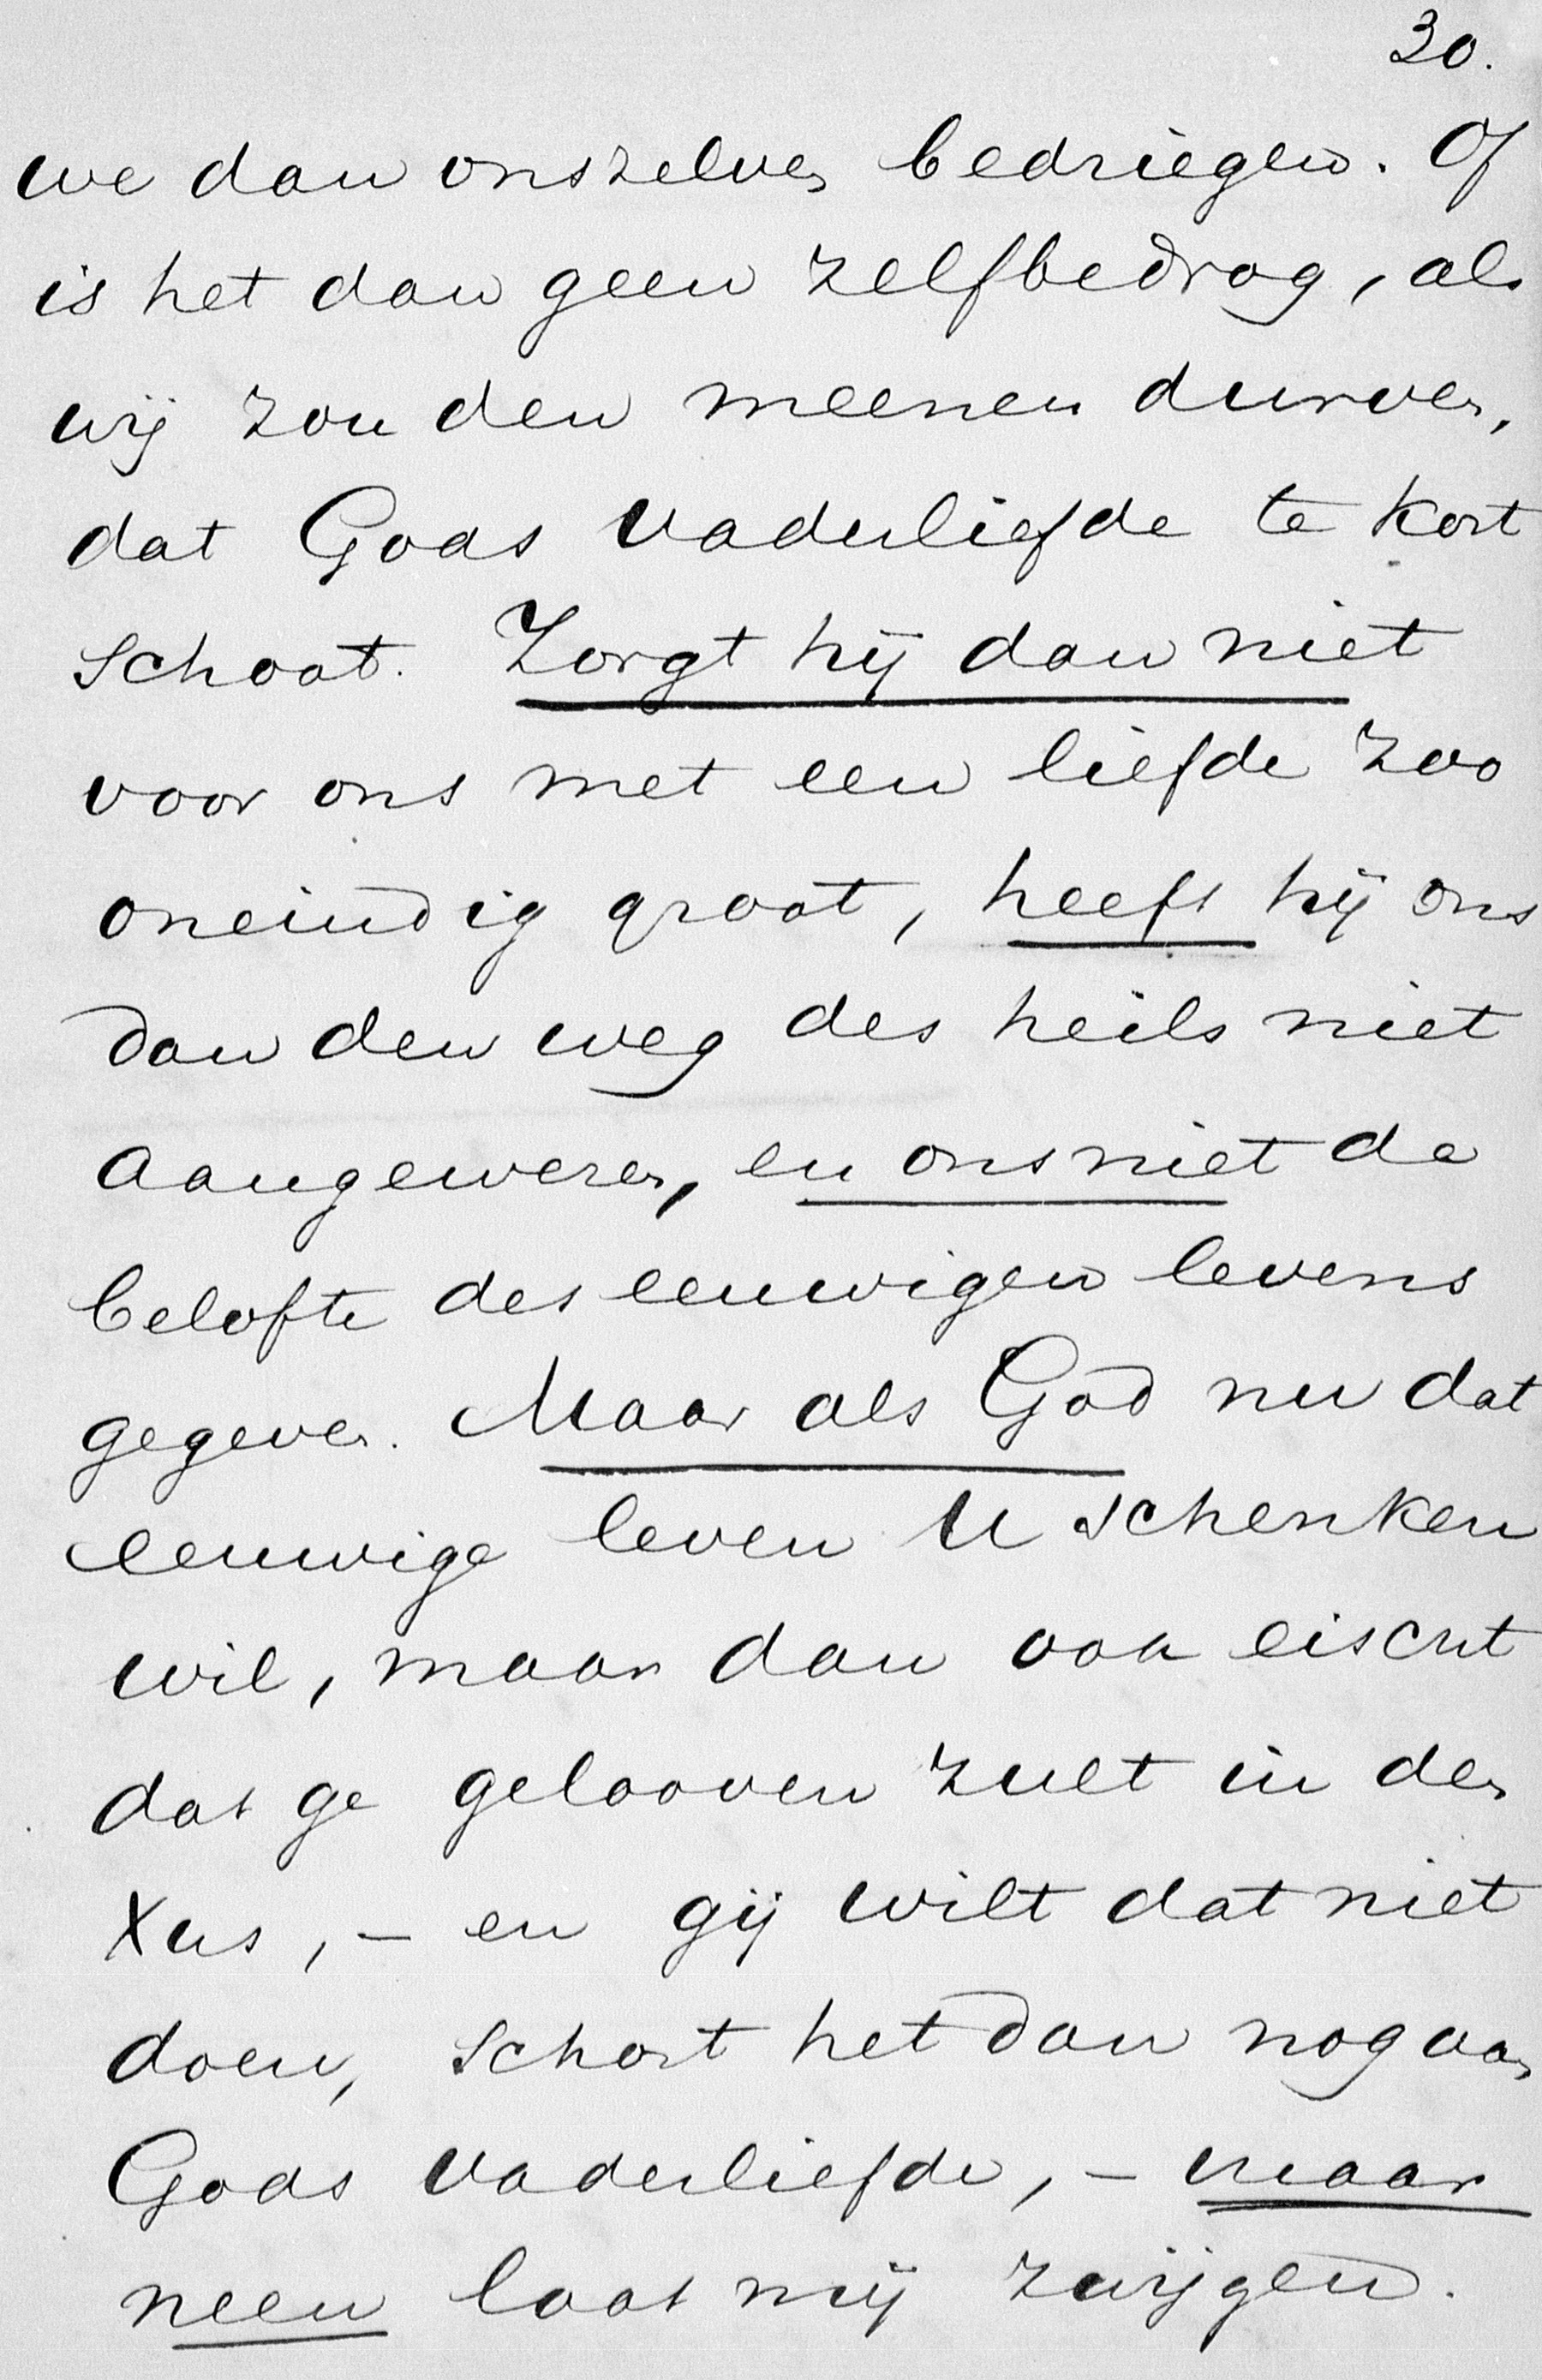 30.
we dan onszelven bedriegen. Of
is het dan geen zelfbedrog, als
wij zouden meenen durven,
dat Gods Vaderliefde te kort
schoot. Zorgt hij dan niet
voor ons met een liefde zoo
oneindig groot, heeft hij ons
dan den weg des heils niet
aangewezen, en ons niet de
belofte des eeuwigen levens
gegeven. Maar als God nu dat
eeuwige leven U schenken
wil, maar dan ook eischt
dat ge gelooven zult in den
Xus, – en gij wilt dat niet
doen, schort het dan nog aan
Gods Vaderliefde, – maar
neen laat mij zwijgen.